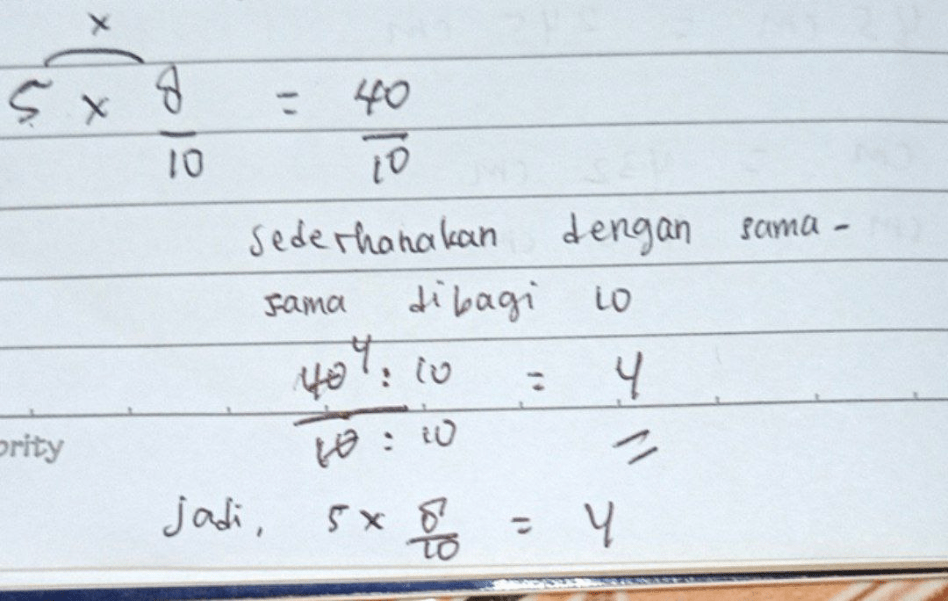 x
5 x 8/10 = 40/10
sederhanakan dengan sama-
sama dibagi 10
40 4 : 10 / 10 : 10 = 4
ority
jadi, 5 x 8/10 = 4